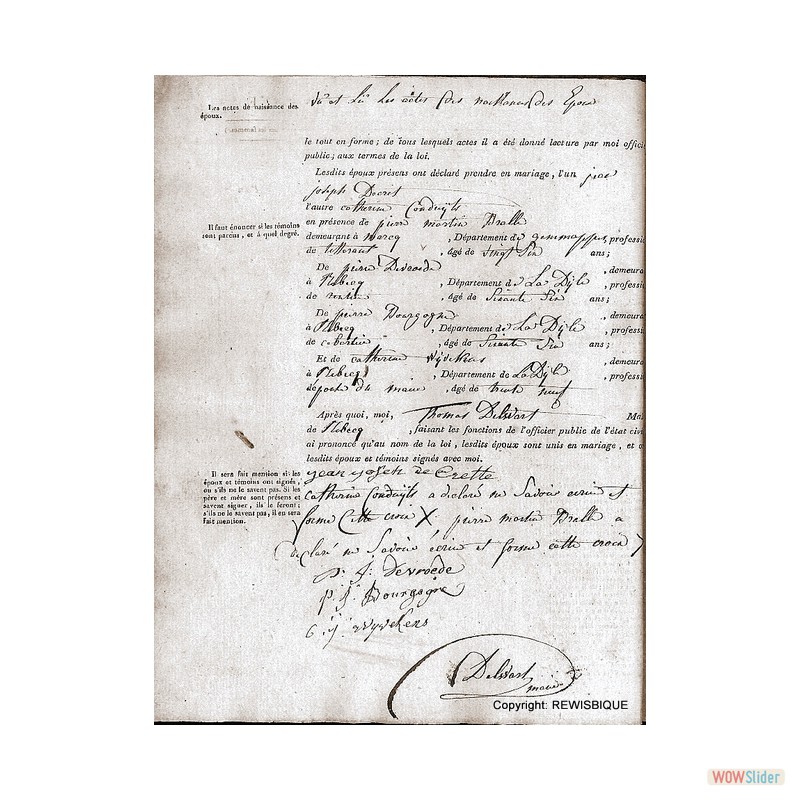 Les actes de naissance des
époux.
Vu et Lu Les actes des naissances des Epoux
le tout en forme; de tous lesquels actes il a été donné lecture par moi offici
public; aux termes de la loi.
Lesdits époux présens ont déclaré prendre en mariage, l'un jean
joseph Decret
l'autre catherine Conduÿts
Il faut énoncer si les témoins
sont parens, et à quel degré.
en présence de pierre martin Bralle
demeurant à marcq , Département de jemmappes, professi
de tisserant , âgé de vingt Six ans;
De pierre Devroede , demeura
à Rebecq , Département de La Dÿle , professi
de rentier , âgé de Sixante Six ans;
De pierre Bourgogne , demeura
à Rebecq , Département de La Dÿle , professi
de cabartier , âgé de Sixante Six ans;
Et de catherine wÿdekens , demeura
à Rebecq , Département de La Dÿle , professi
de , âgé de trente neuf
Après quoi, moi, Thomas Delwart Mai
de Rebecq , faisant les fonctions de l'officier public de l'état civi
ai prononcé qu'au nom de la loi, lesdits époux sont unis en mariage, et o
lesdits époux et témoins signés avec moi.
Il sera fait mention si les
époux et témoins ont signés,
ou s'ils ne le savent pas. Si les
père et mère sont présens et
savent signer, ils le feront;
s'ils ne le savent pas, il en sera
fait mention.
jean joseh de Crette
Catherine Conduÿts a declaré ne Savoir ecrire et
forme Cette croix X, pierre martin Bralle a
declaré ne Savoir écrire et forme cette croix X
p. J. Devroede
p. J. Bourgogne
Delwart
maire
Copyright: REWISBIQUE
WOWSlider